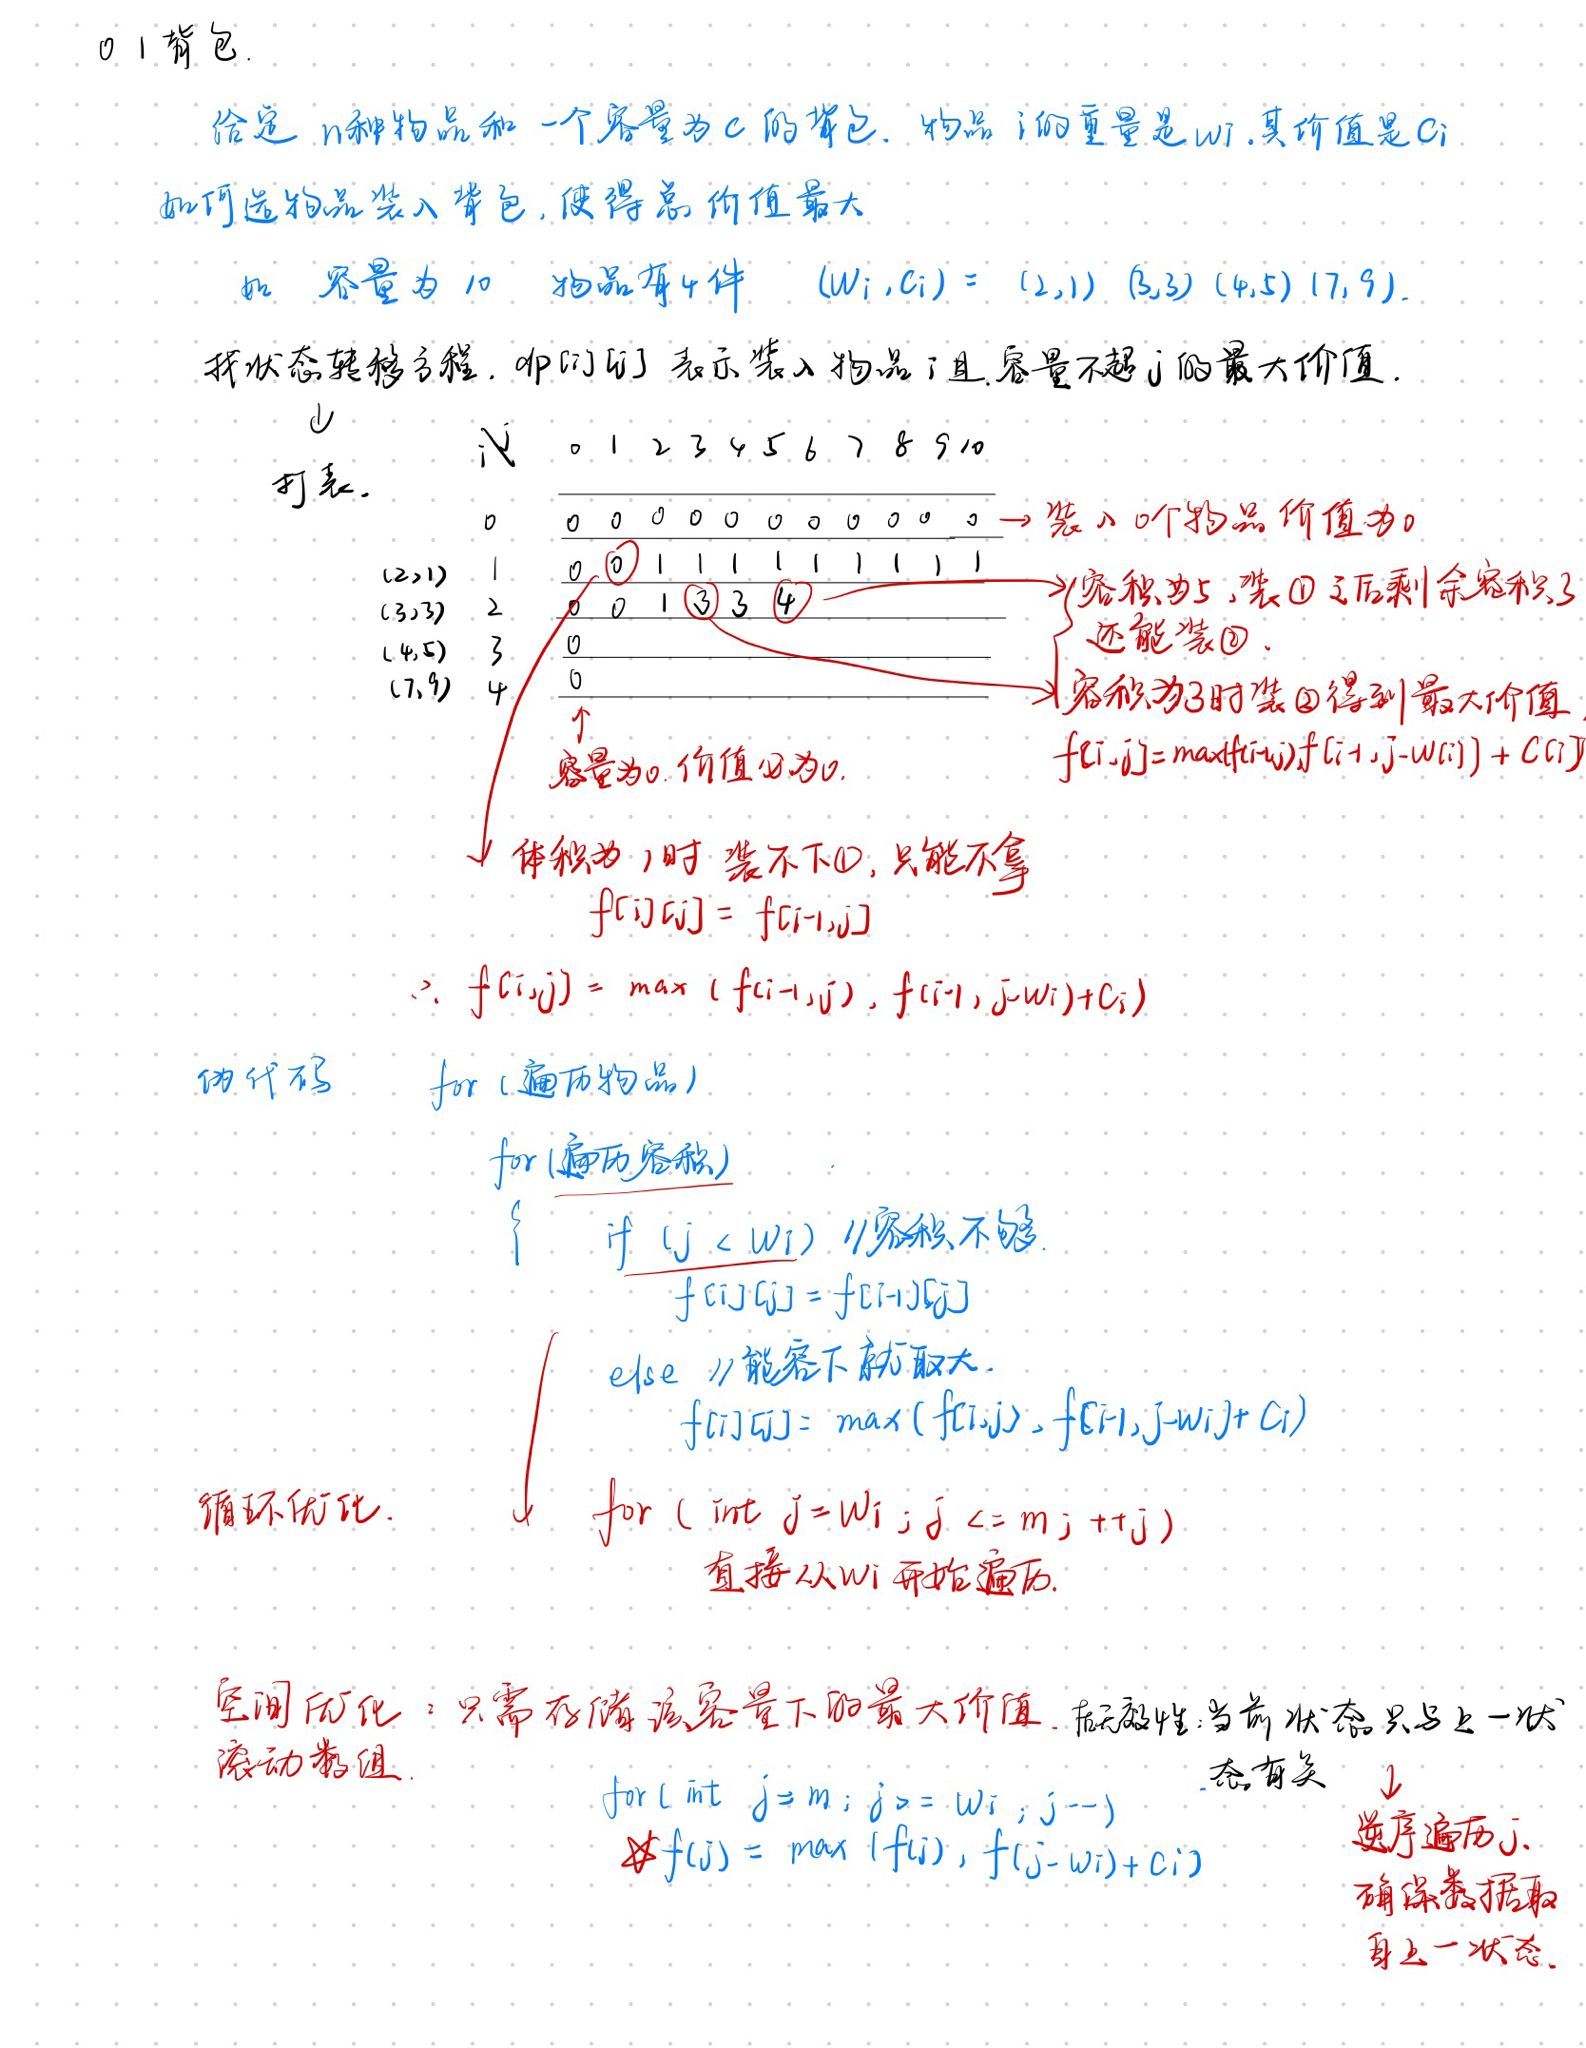 01背包.
给定 n种物品和 一个容量为C的背包. 物品i的重量是wi.其价值是Ci
如何选物品装入背包,使得总价值最大
如 容量为10 物品有4件 (Wi,Ci) = (2,1) (3,3) (4,5) (7,9).
找状态转移方程. dp[i][j] 表示装入物品i且容量不超j的最大价值.
↓
打表.
i\j 0 1 2 3 4 5 6 7 8 9 10
0 0 0 0 0 0 0 0 0 0 0 0 → 装入0个物品价值为0
(2,1) 1 0 0 1 1 1 1 1 1 1 1 1
(3,3) 2 0 0 1 3 3 4 容积为5,装①之后剩余容积3
还能装②.
(4,5) 3 0
(7,9) 4 0 容积为3时装②得到最大价值,
↑
f[i,j]=max(f(i-1,j),f[i-1,j-W(i)]+C(i))
容量为0.价值必为0.
体积为1时 装不下①,只能不拿
f[i][j] = f[i-1,j]
∴ f[i,j] = max (f(i-1,j), f(i-1, j-wi)+Ci)
伪代码 for (遍历物品)
for(遍历容积)
{ if (j < Wi) //容积不够.
f[i][j]=f[i-1][j]
else //能容下就取大.
f[i][j]= max(f[i,j), f[i-1,j-wi]+Ci)
循环优化. for ( int j=Wi; j <= m; ++j)
直接从Wi开始遍历.
空间优化:只需存储该容量下的最大价值. 后效性:当前状态只与上一状
滚动数组. 态有关
↓
for( int j=m; j>= Wi; j--)
f(j) = max (f(j), f(j-wi)+Ci)
逆序遍历j.
确保数据取
自上一状态.